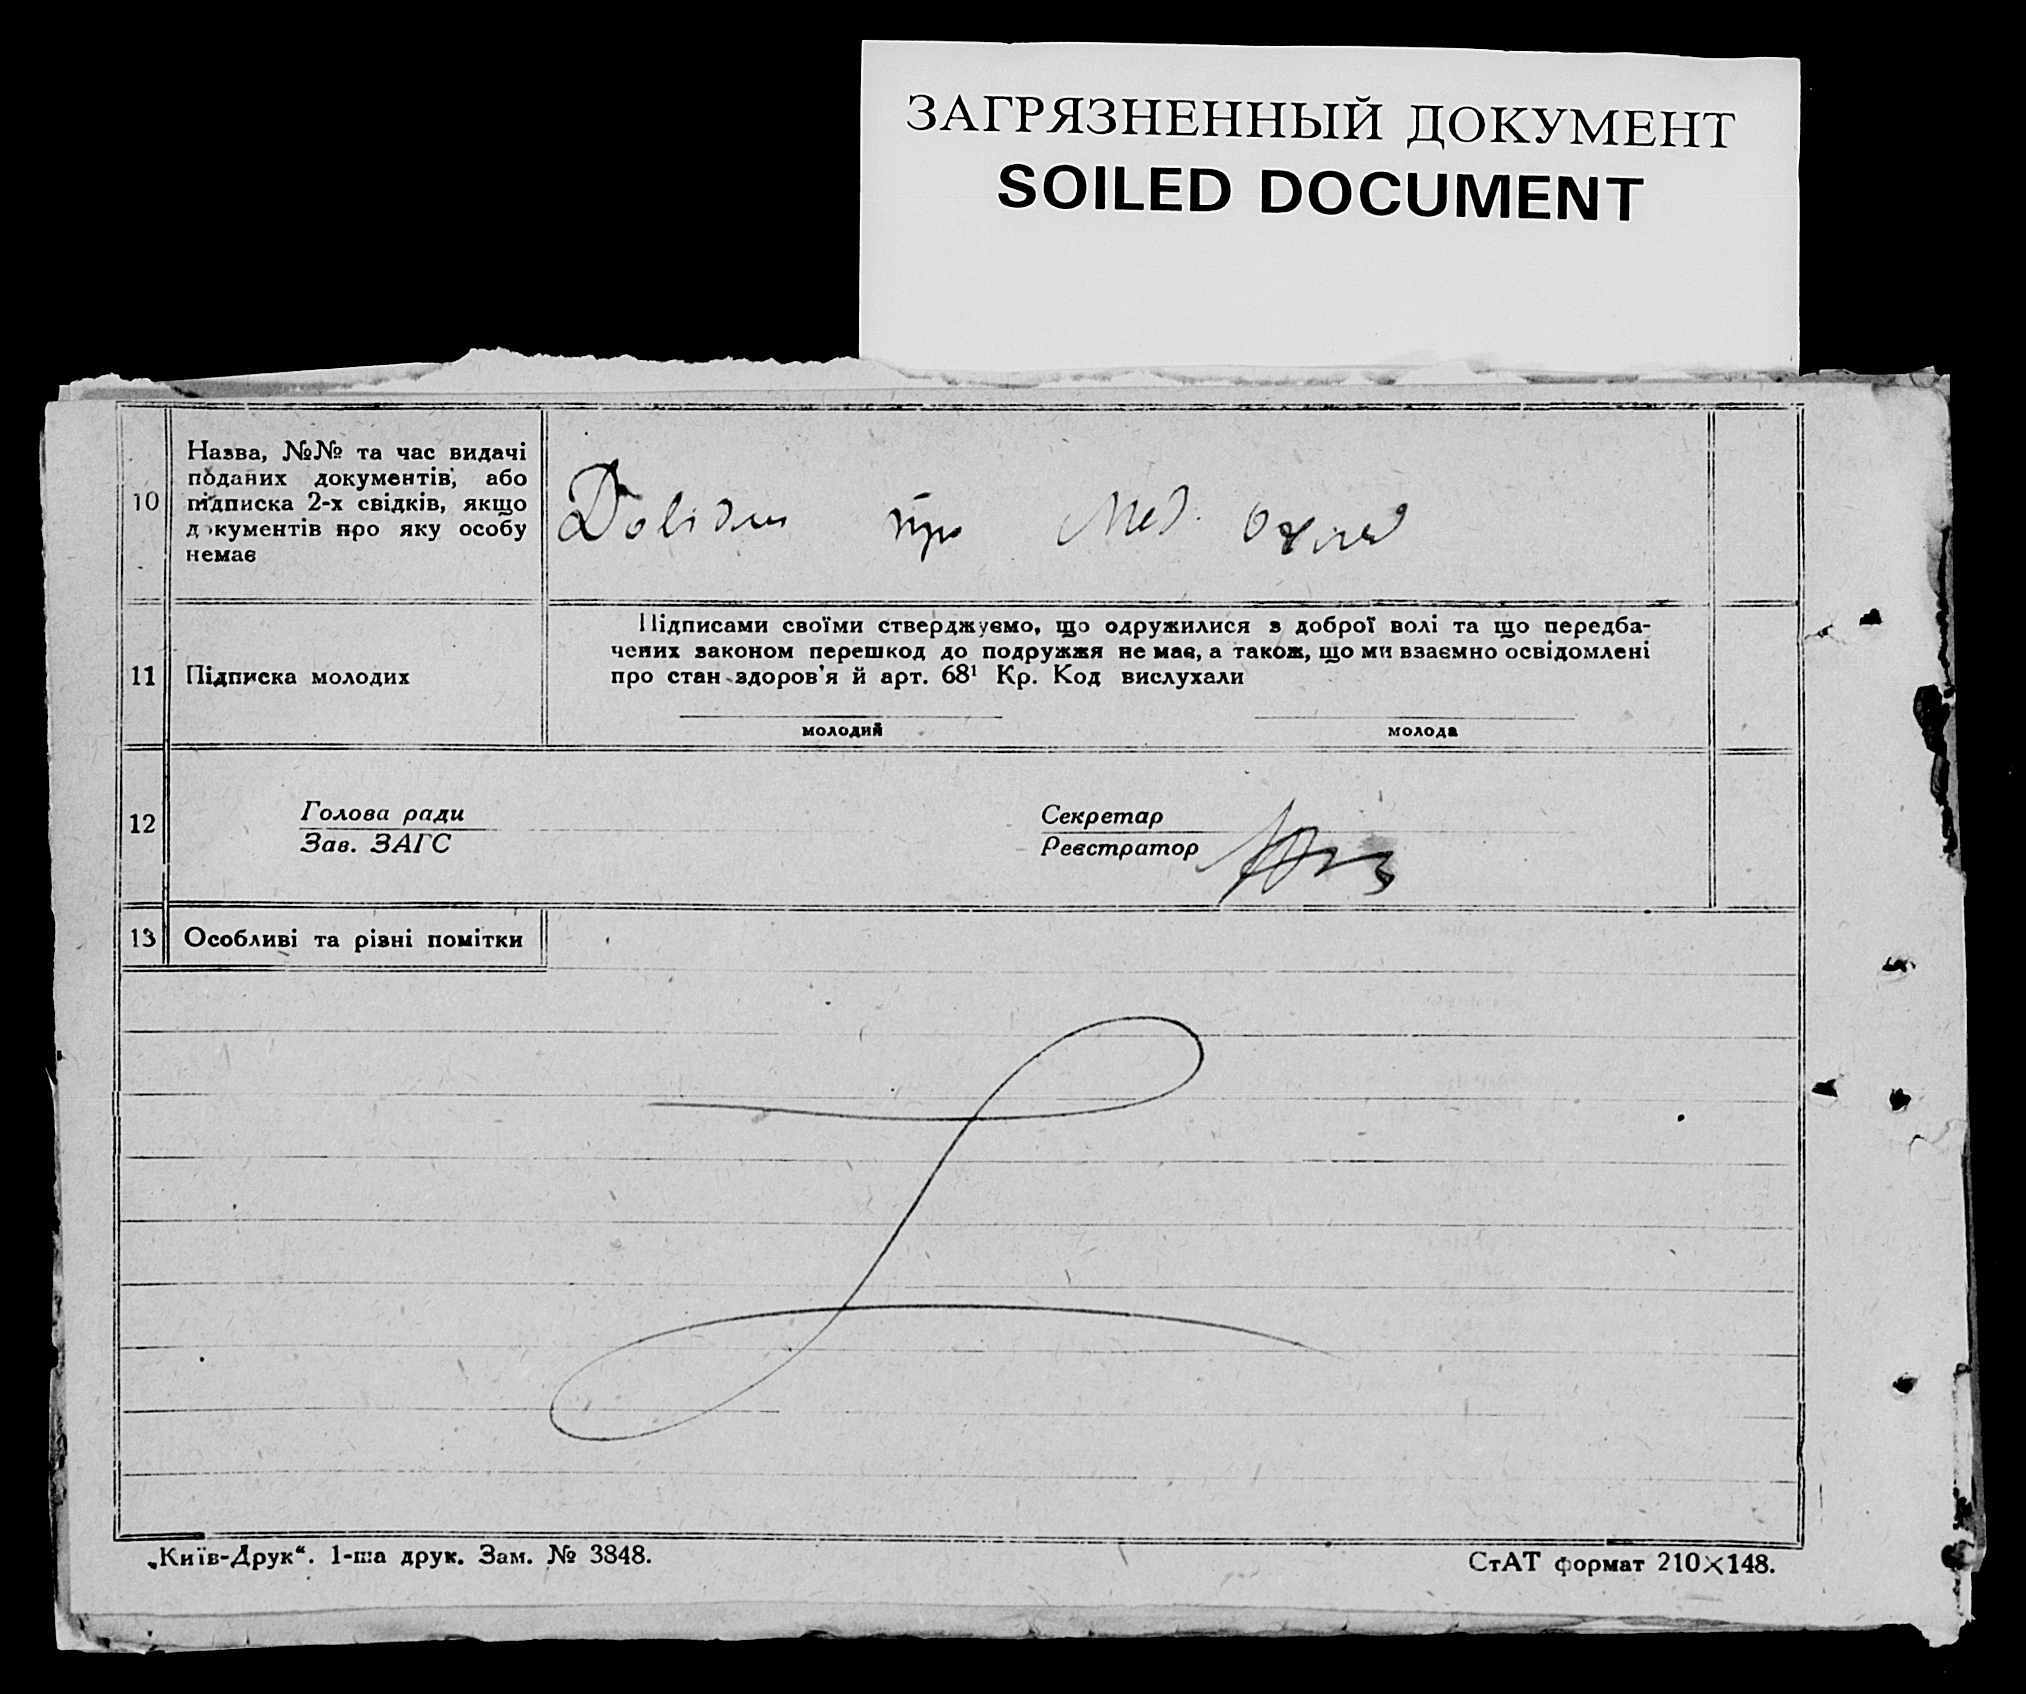 ЗАГРЯЗНЕННЫЙ ДОКУМЕНТ
SOILED DOCUMENT
10
Назва, №№ та час видачі
поданих документів, або
підписка 2-х свідків, якщо
документів про яку особу
немає
Довідки про мед. огляд
11
Підписка молодих
Підписами своїми стверджуємо, що одружилися з доброї волі та що передба-
чених законом перешкод до подружжя немає, а також, що ми взаємно освідомлені
про стан здоров'я й арт. 68¹ Кр. Код вислухали
молодий
молода
12
Голова ради
Зав. ЗАГС
Секретар
Реєстратор
13
Особливі та різні помітки
„Київ-Друк“. 1-ша друк. Зам. № 3848.
СтАТ формат 210×148.